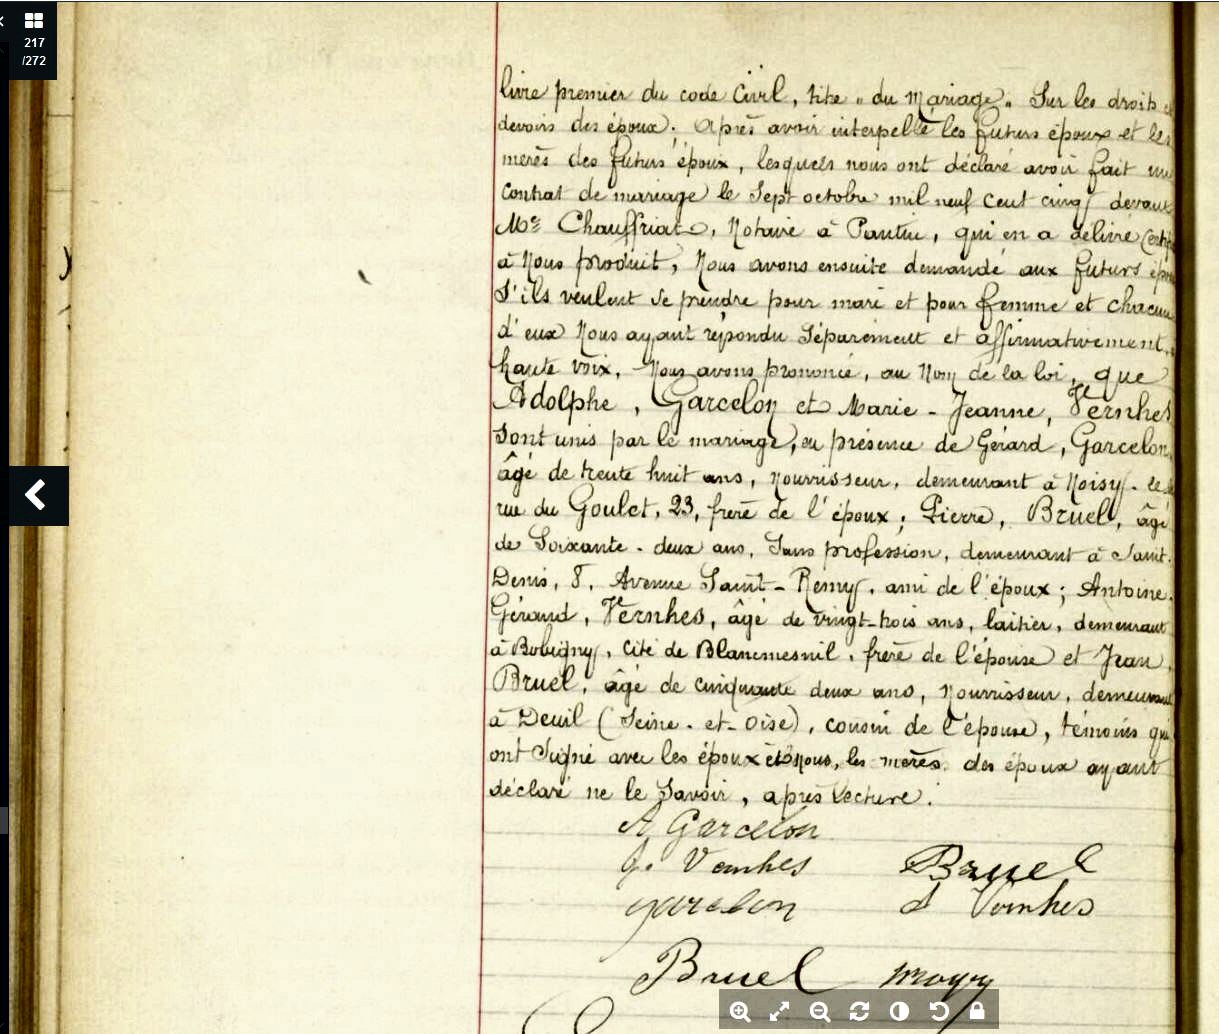 217
/272
livre premier du code Civil, titre „ du Mariage „ Sur les droits et
devoirs des époux ; Après avoir interpellé les futurs époux et les
mères des futurs époux, lesquels nous ont déclaré avoir fait un
contrat de mariage le Sept octobre mil neuf cent cinq devant
Me Chauffriat, Notaire à Pantin, qui en a délivré
à Nous produit, Nous avons ensuite demandé aux futurs
S'ils veulent se prendre pour mari et pour femme et chacun
d'eux Nous ayant répondu Séparément et affirmativement,
haute voix, Nous avons prononcé, au Nom de la loi, que
Adolphe, Garcelon et Marie-Jeanne, Vernhes
sont unis par le mariage, en présence de Gérard, Garcelon,
âgé de trente huit ans, nourrisseur, demeurant à Noisy-le
rue du Goulet, 23, frère de l'époux ; Pierre, Bruel, âgé
de Soixante-deux ans, Sans profession, demeurant à Saint-
Denis, 8, Avenue Saint-Remy, ami de l'époux ; Antoine
Géraud, Vernhes, âgé de vingt-trois ans, laitier, demeurant
à Bobigny, Cité de Blancmesnil, frère de l'épouse et Jean,
Bruel, âgé de cinquante deux ans, Nourrisseur, demeurant
à Deuil (Seine-et-Oise), cousin de l'épouse, témoins qui
ont Signé avec les époux et Nous, les mères des époux ayant
déclaré ne le Savoir, après Lecture.
A Garcelon
J. Vernhes Bruel
garcelon Vernhes
Bruel